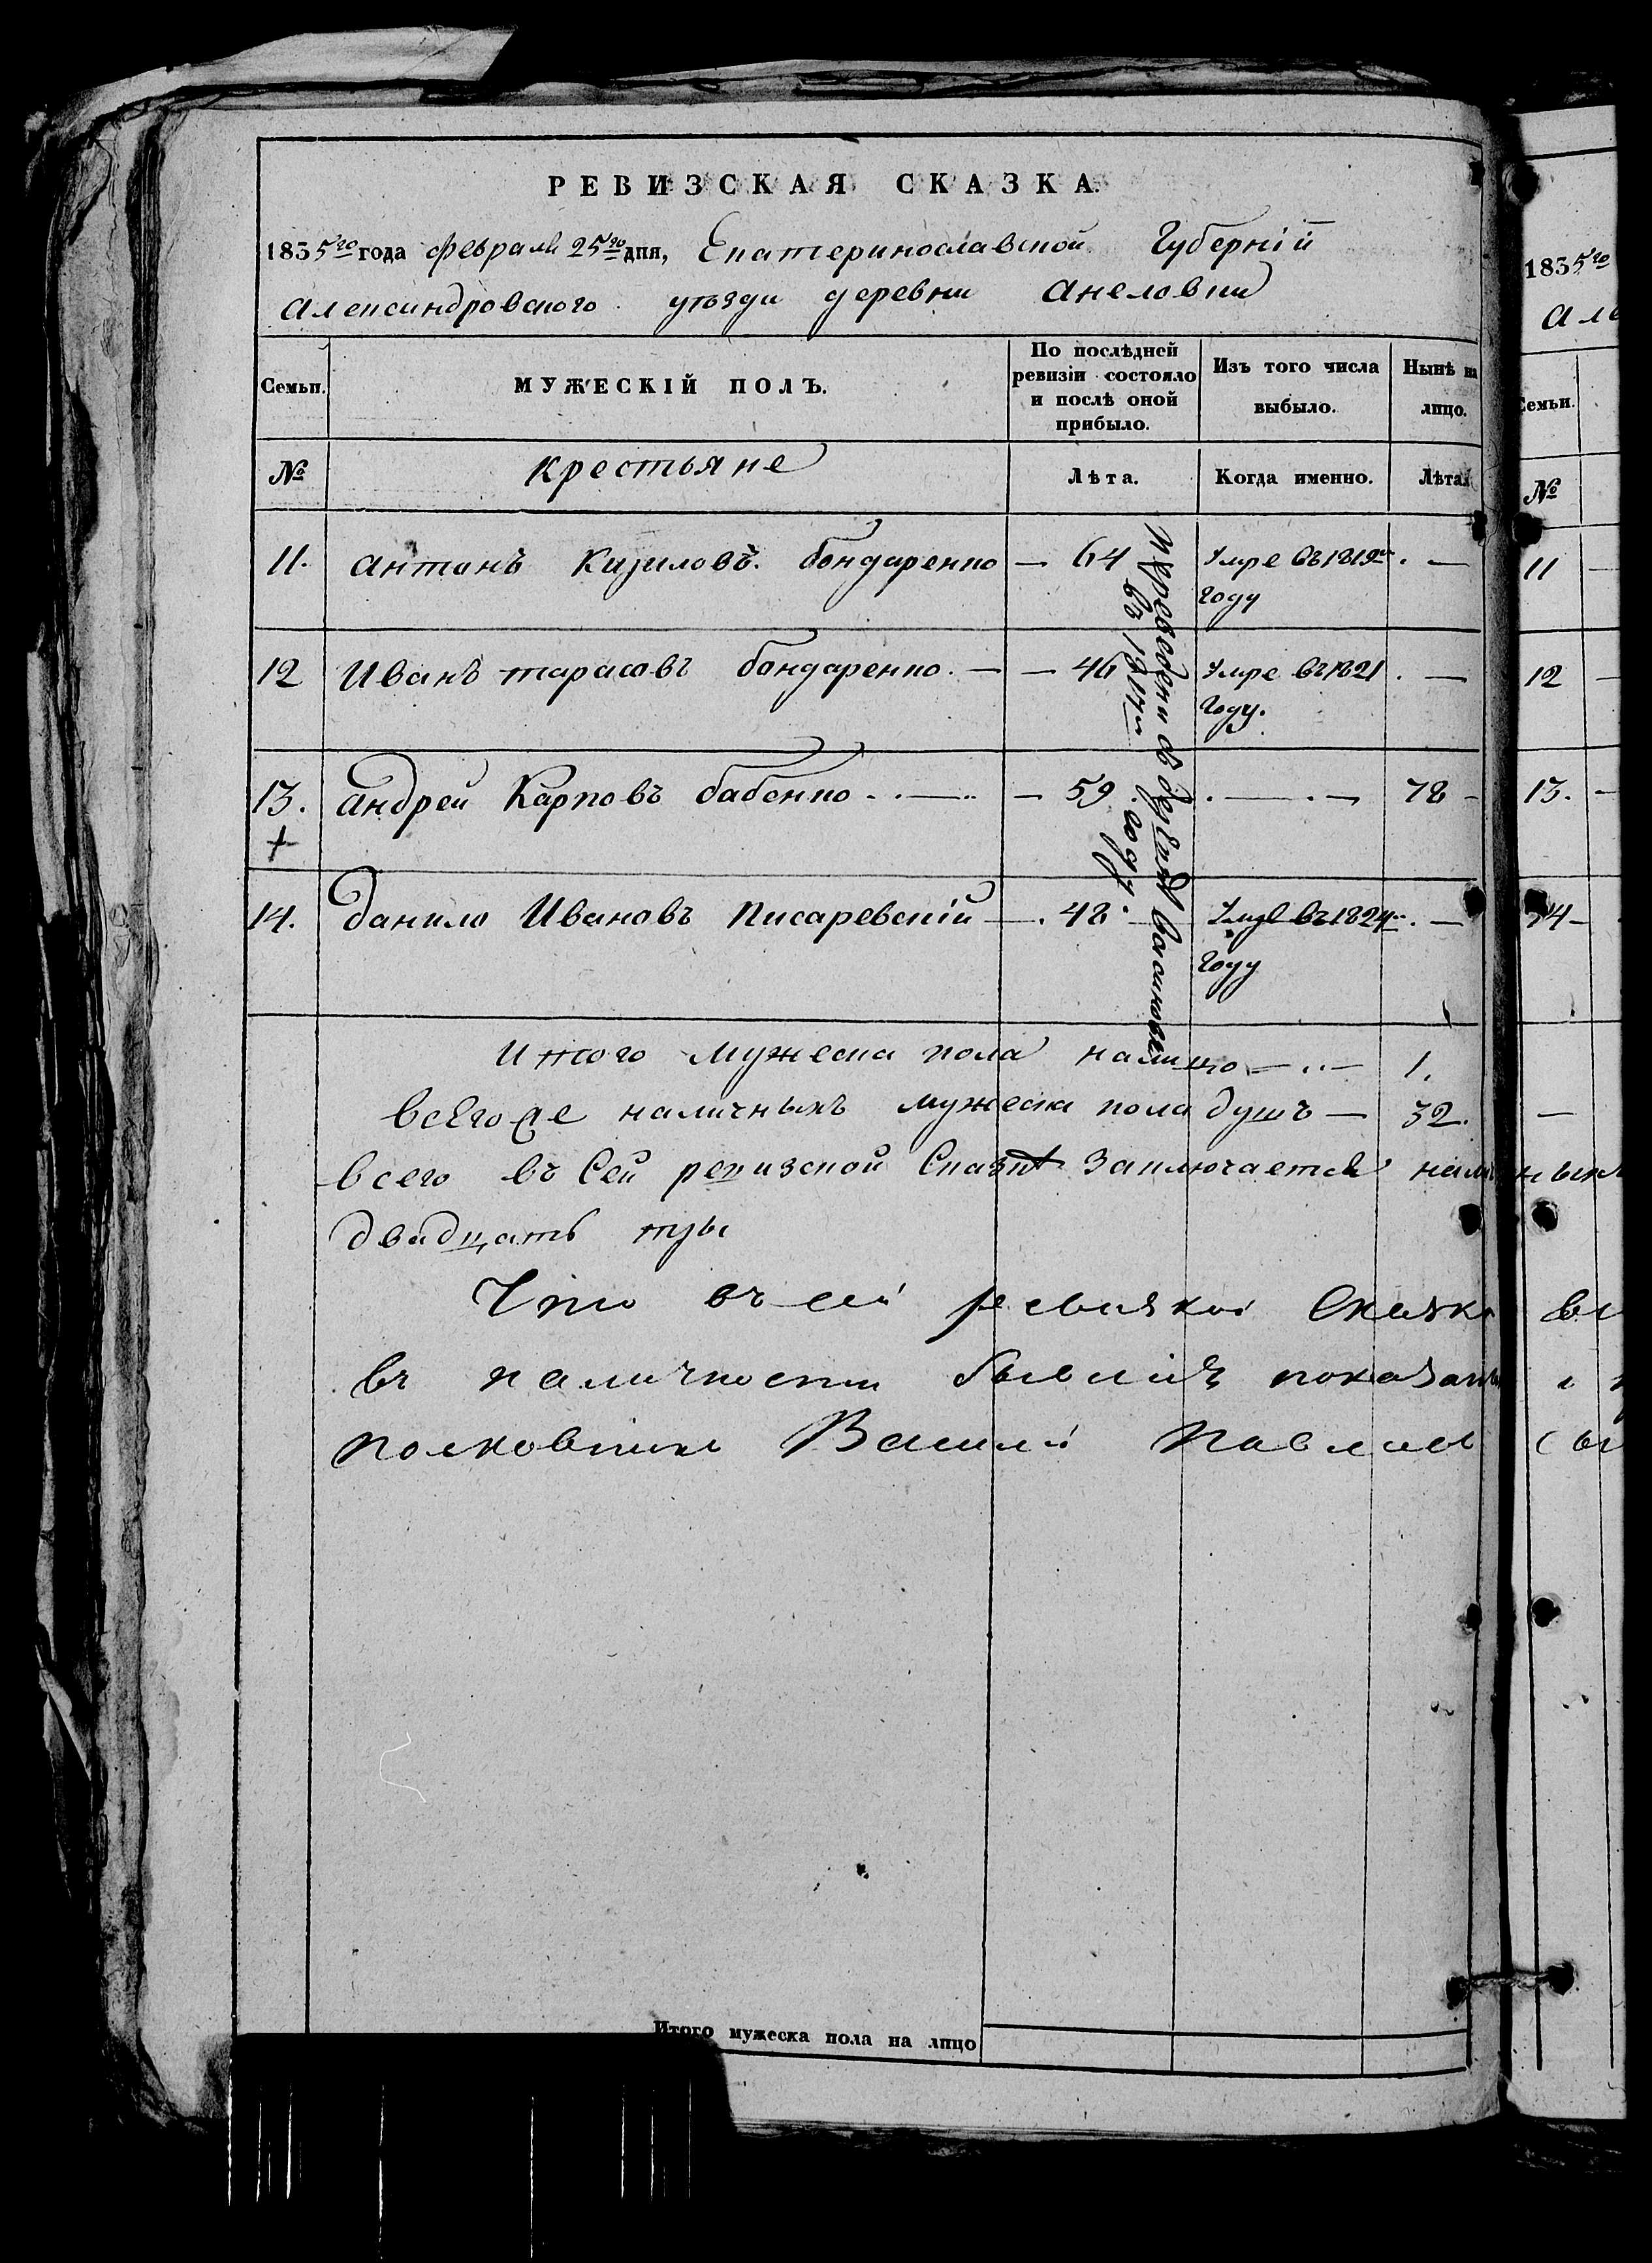 РЕВИЗСКАЯ СКАЗКА
1835го года февраля 25го дня, Екатеринославской Губерніи
Александровского уѣзда деревни Анеловки
Семьи.
МУЖЕСКІЙ ПОЛЪ.
По послѣдней ревизіи состояло и послѣ оной прибыло.
Изъ того числа выбыло.
Нынѣ на лицо.
№
крестьяне
Лѣта.
Когда именно.
Лѣта.
11. Антонъ Кириловъ бондаренко — 64 Умре въ 1819м. —
году
12 Иванъ тарасовъ бондаренко. — — 46 Умре въ 1821. —
году.
13. андрей Карповъ бабенко — 59 — 78 -
+
14. данило Ивановъ писаревскій — 48 Умре въ 1824м. —
году
переведены въ
въ 1817м году
Итого мужеска пола налицо — 1.
всего же наличныхъ мужеска пола душъ — 32.
всего въ Сей ревизской Сказкѣ Заключается наличныхъ
двадцать три
Что въ сей ревизкой Сказки
въ наличности бывшія показаны
полковника Василій Павловъ
Итого мужеска пола на лицо
1835го
Але
Семьи.
№
11
12
13.
14